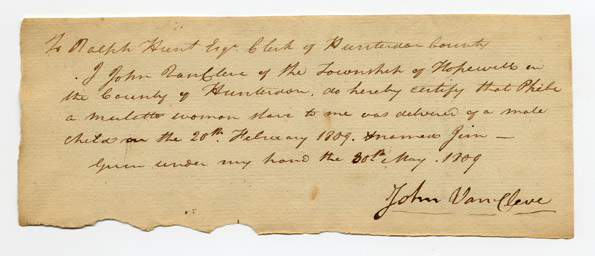 To Ralph Hunt Esqr Clerk of Hunterdon County
I John VanCleve of the Township of Hopewell in
the County of Hunterdon, do hereby certify that Phebe
a mulatto woman slave to me was delivered of a male
child on the 20th February 1809. & named Jim —
Given under my hand the 30th May. 1809
John VanCleve